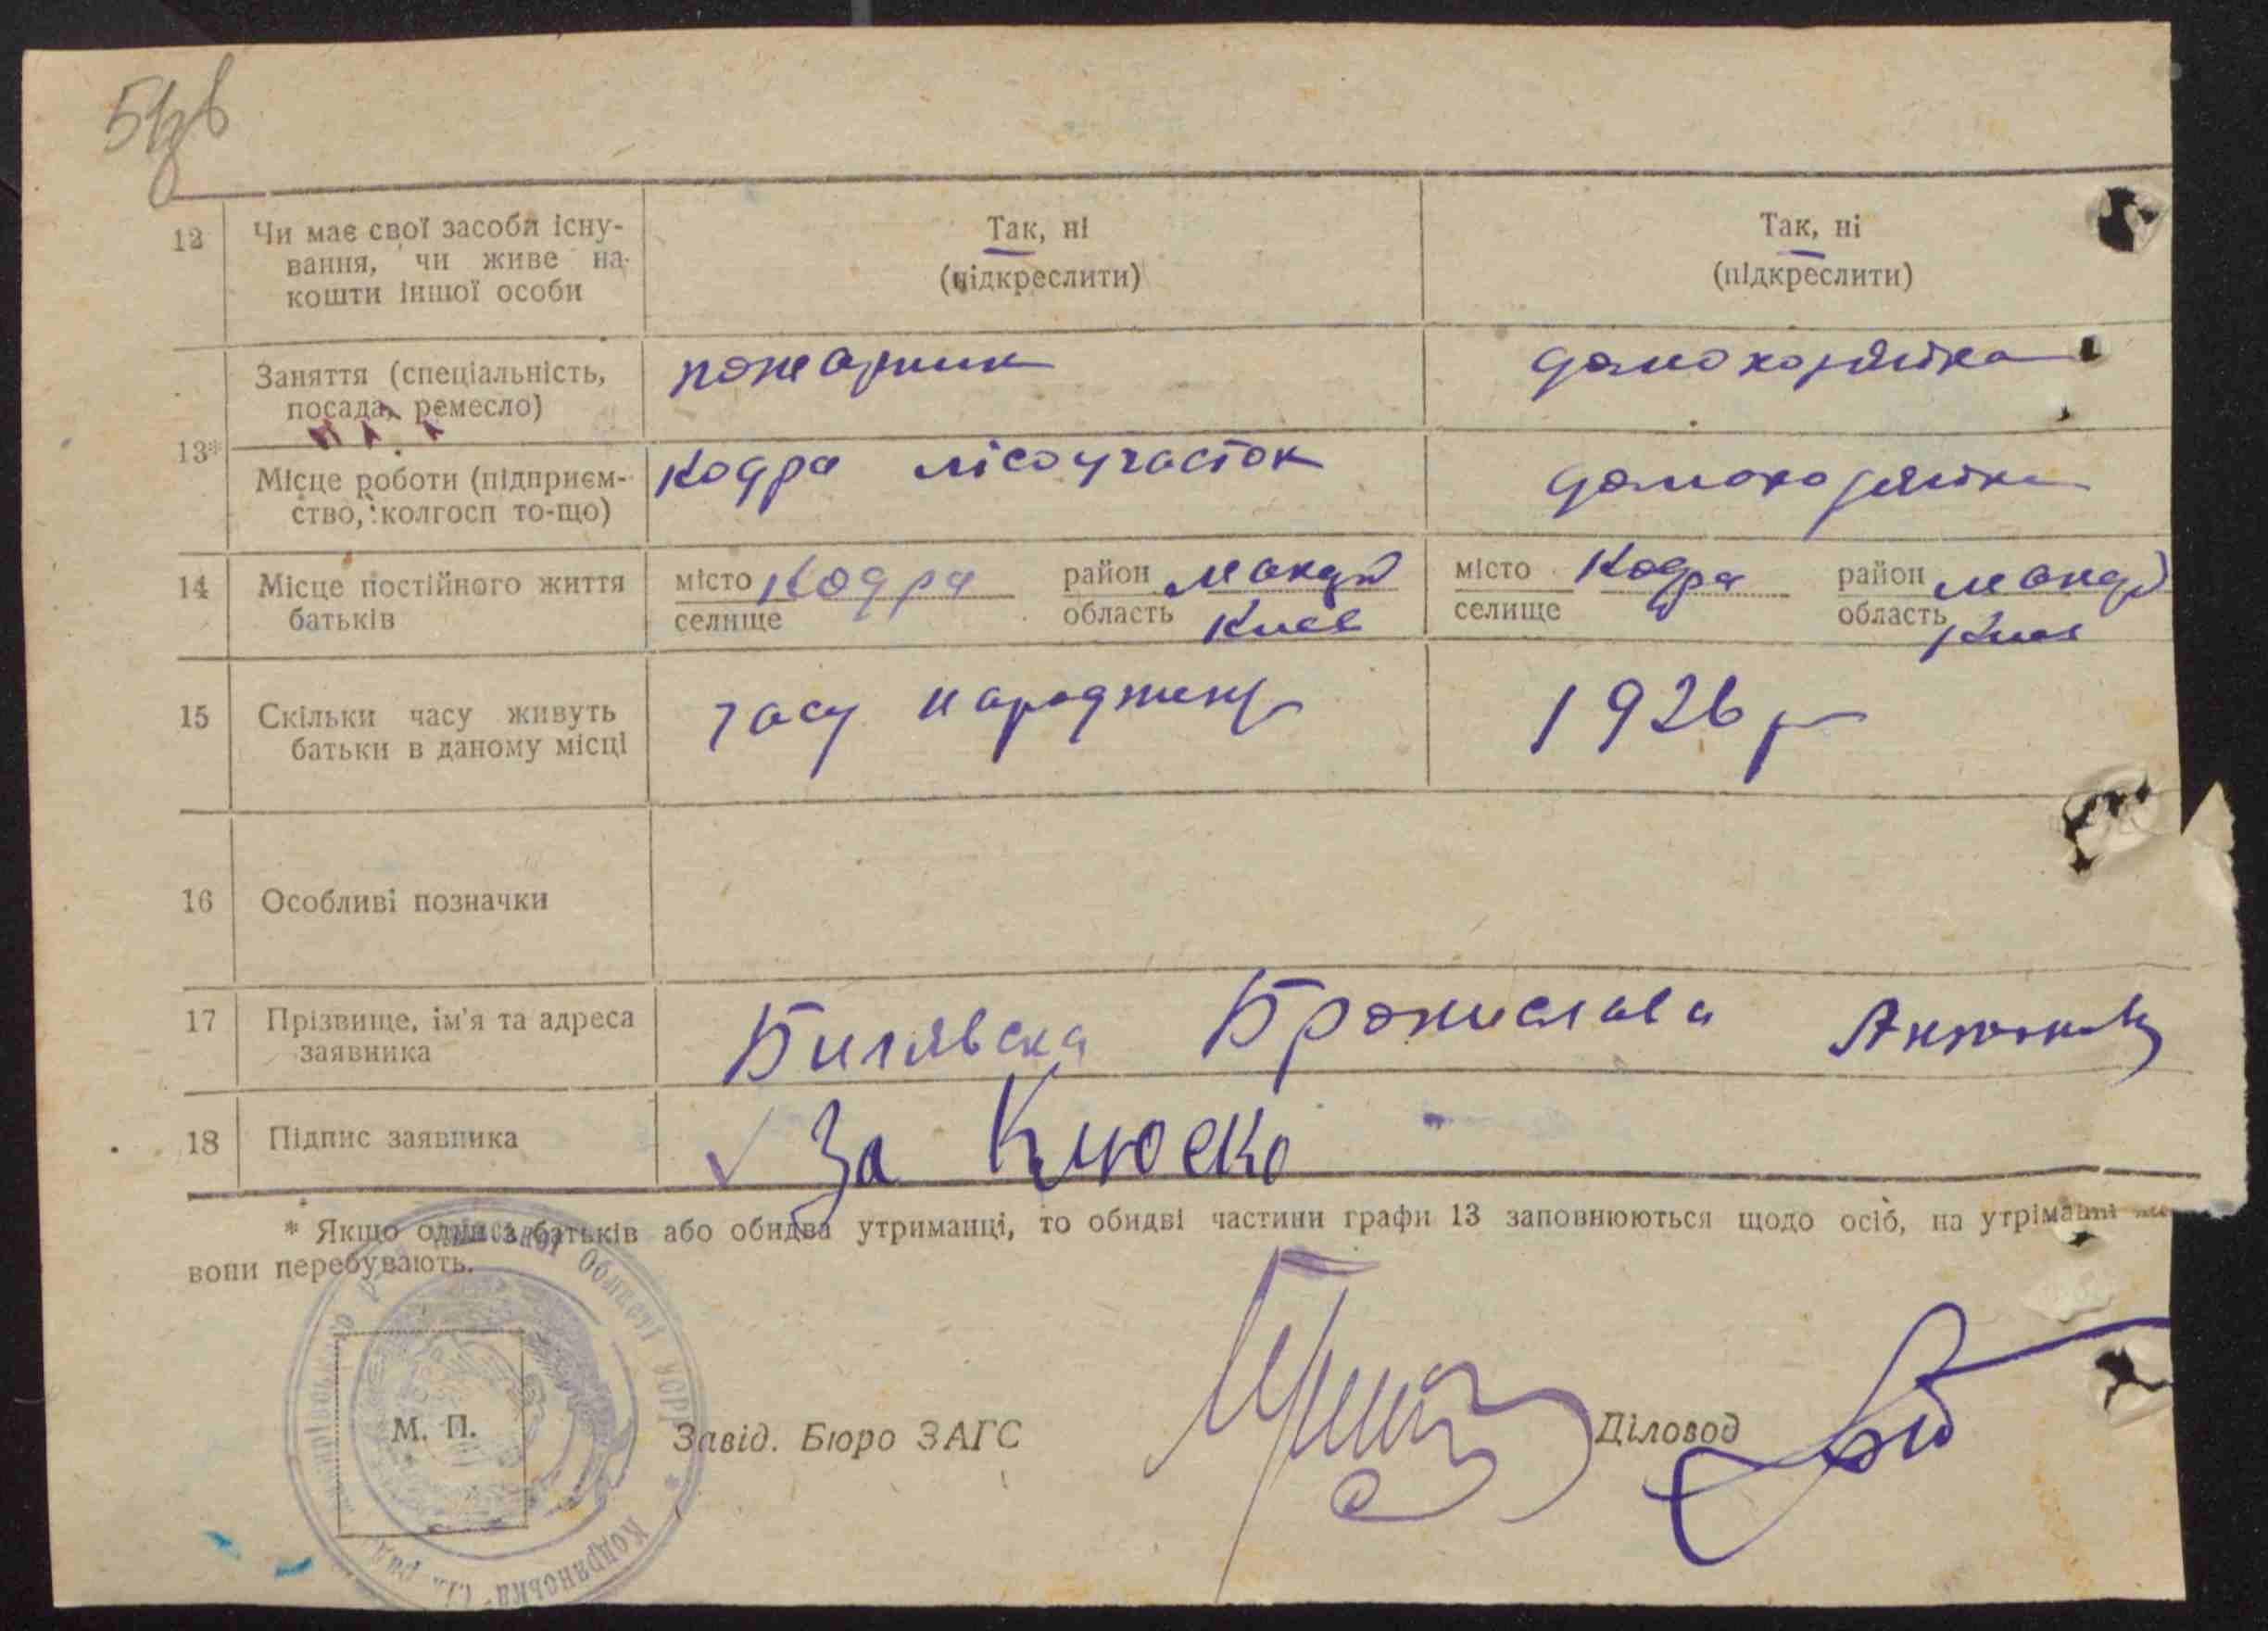 12 Чи має свої засоби існу-
вання, чи живе на
кошти іншої особи
Так, ні
(підкреслити)
Так, ні
(підкреслити)
13*
Заняття (спеціальність,
посада, ремесло)
пожарник
домохозяйка
Місце роботи (підприєм-
ство, колгосп то-що)
Кодра лісоучасток
домохозяйка
14 Місце постійного життя
батьків
місто Кодра район Макар
селище область Києв
місто Кодра район Макар
селище область Києв
15 Скільки часу живуть
батьки в даному місці
часу народження
1926 р
16 Особливі позначки
17 Прізвище, ім'я та адреса
заявника
Билявска Бронислава
18 Підпис заявника
За
* Якщо один з батьків або обидва утриманці, то обидві частини графи 13 заповнюються щодо осіб, на утріманні
вони перебувають.
Київської Області УСРР * Кодрянська сіл. рада
М. П.
Завід. Бюро ЗАГС
Діловод